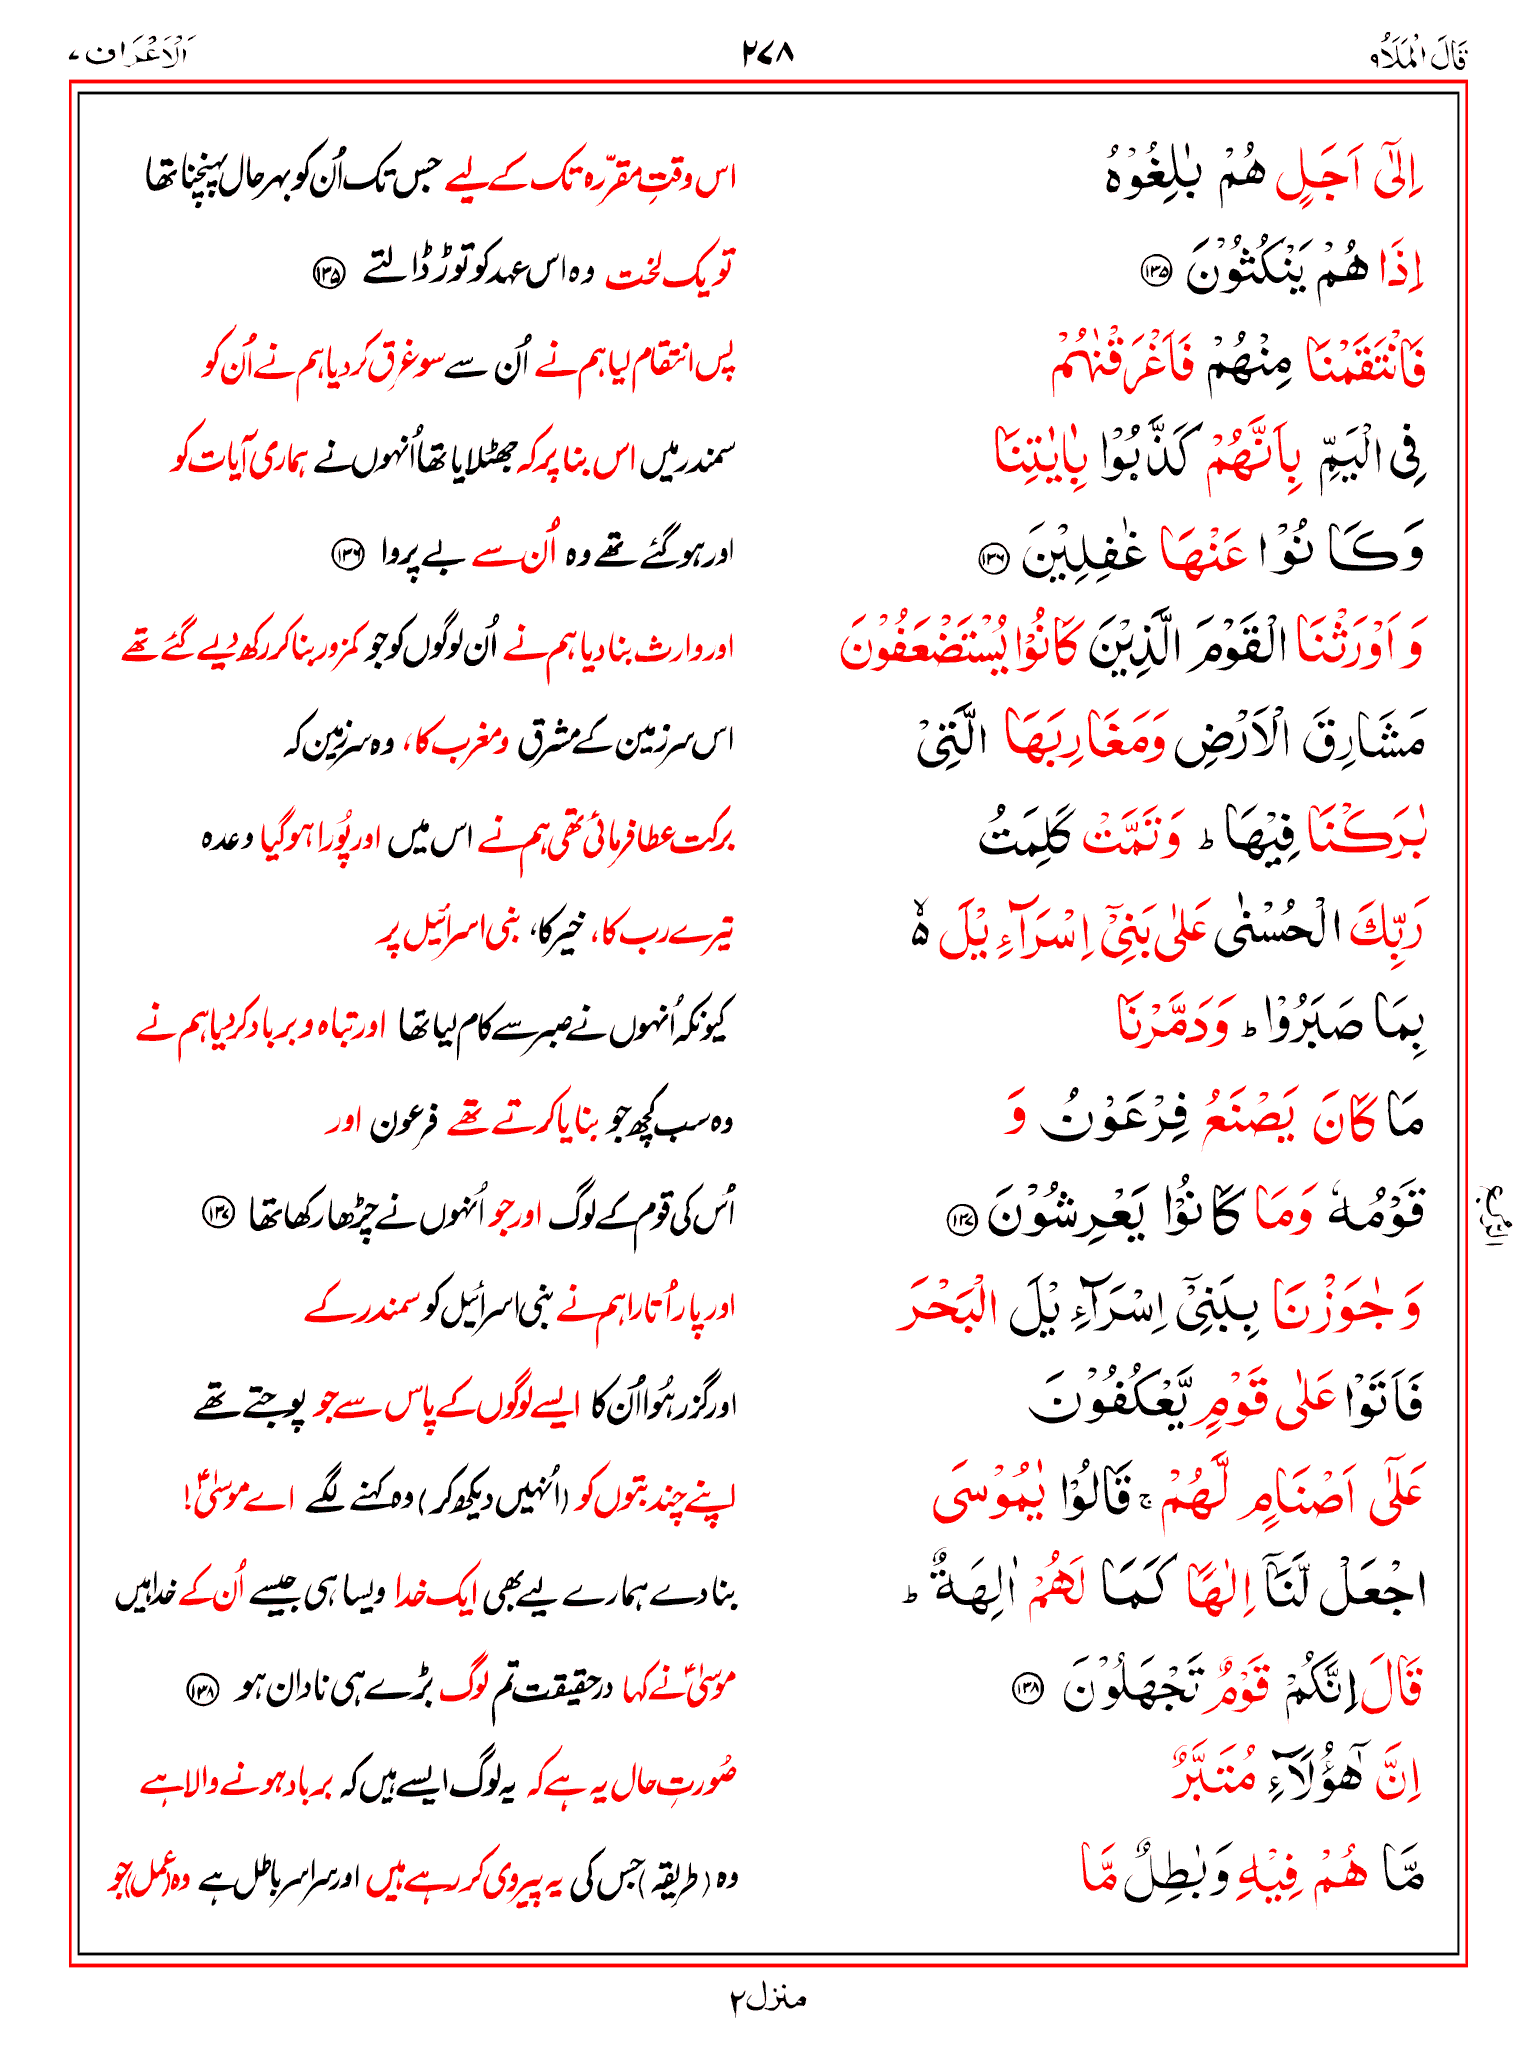 قَالَ الْمَلَاُ ۹ ۲۷۸ اَلْاَعْرَاف ۷
اِلٰۤى اَجَلٍ هُمْ بٰلِغُوْهُ اس وقتِ مقرّرہ تک کے لیے جس تک اُن کو بہرحال پہنچنا تھا
اِذَا هُمْ يَنْكُثُوْنَ ۱۳۵ تو یک لخت وہ اس عہد کو توڑ ڈالتے ۱۳۵
فَانْتَقَمْنَا مِنْهُمْ فَاَغْرَقْنٰهُمْ پس انتقام لیا ہم نے اُن سے سو غرق کر دیا ہم نے اُن کو
فِى الْيَمِّ بِاَنَّهُمْ كَذَّبُوْا بِاٰيٰتِنَا سمندر میں اس بنا پر کہ جھٹلایا تھا اُنہوں نے ہماری آیات کو
وَكَانُوْا عَنْهَا غٰفِلِيْنَ ۱۳۶ اور ہو گئے تھے وہ اُن سے بے پروا ۱۳۶
وَ اَوْرَثْنَا الْقَوْمَ الَّذِيْنَ كَانُوْا يُسْتَضْعَفُوْنَ اور وارث بنا دیا ہم نے اُن لوگوں کو جو کمزور بنا کر رکھ دیے گئے تھے
مَشَارِقَ الْاَرْضِ وَمَغَارِبَهَا الَّتِىْ اس سرزمین کے مشرق ومغرب کا، وہ سرزمین کہ
بٰرَكْنَا فِيْهَا ؕ وَتَمَّتْ كَلِمَتُ برکت عطا فرمائی تھی ہم نے اس میں اور پُورا ہو گیا وعدہ
رَبِّكَ الْحُسْنٰى عَلٰى بَنِىْۤ اِسْرَآءِيْلَ ۙ۬ تیرے رب کا، خیر کا، بنی اسرائیل پر
بِمَا صَبَرُوْا ؕ وَدَمَّرْنَا کیونکہ اُنہوں نے صبر سے کام لیا تھا اور تباہ و برباد کر دیا ہم نے
مَا كَانَ يَصْنَعُ فِرْعَوْنُ وَ وہ سب کچھ جو بنایا کرتے تھے فرعون اور
قَوْمُهٗ وَمَا كَانُوْا يَعْرِشُوْنَ ۱۳۷ اُس کی قوم کے لوگ اور جو اُنہوں نے چڑھا رکھا تھا ۱۳۷
وَ جٰوَزْنَا بِبَنِىْۤ اِسْرَآءِيْلَ الْبَحْرَ اور پار اُتارا ہم نے بنی اسرائیل کو سمندر کے
فَاَتَوْا عَلٰى قَوْمٍ يَّعْكُفُوْنَ اور گزر ہُوا اُن کا ایسے لوگوں کے پاس سے جو پوجتے تھے
عَلٰٓى اَصْنَامٍ لَّهُمْ ۚ قَالُوْا يٰمُوْسَى اپنے چند بتوں کو (اُنہیں دیکھ کر) وہ کہنے لگے اے موسیٰؑ!
اجْعَلْ لَّنَاۤ اِلٰهًا كَمَا لَهُمْ اٰلِهَةٌ ؕ بنا دے ہمارے لیے بھی ایک خدا ویسا ہی جیسے اُن کے خدا ہیں
قَالَ اِنَّكُمْ قَوْمٌ تَجْهَلُوْنَ ۱۳۸ موسیٰؑ نے کہا درحقیقت تم لوگ بڑے ہی نادان ہو ۱۳۸
اِنَّ هٰٓؤُلَآءِ مُتَبَّرٌ صُورتِ حال یہ ہے کہ یہ لوگ ایسے ہیں کہ برباد ہونے والا ہے
مَّا هُمْ فِيْهِ وَبٰطِلٌ مَّا وہ (طریقہ) جس کی یہ پیروی کر رہے ہیں اور سراسر باطل ہے وہ (عمل) جو
منزل ۲